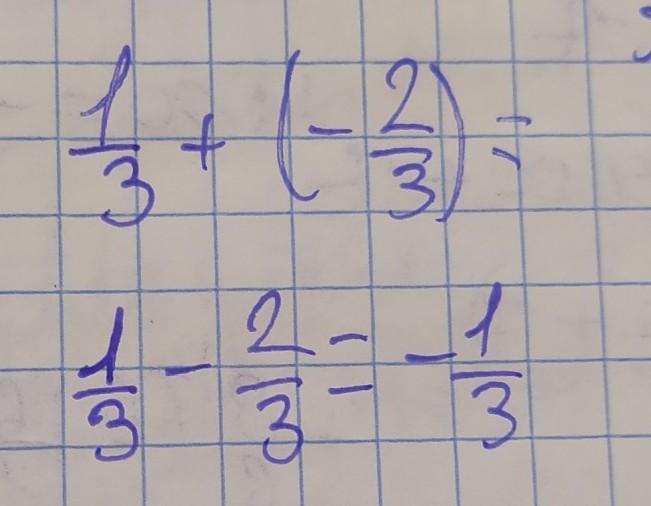 1/3 + (- 2/3) =
1/3 - 2/3 = - 1/3